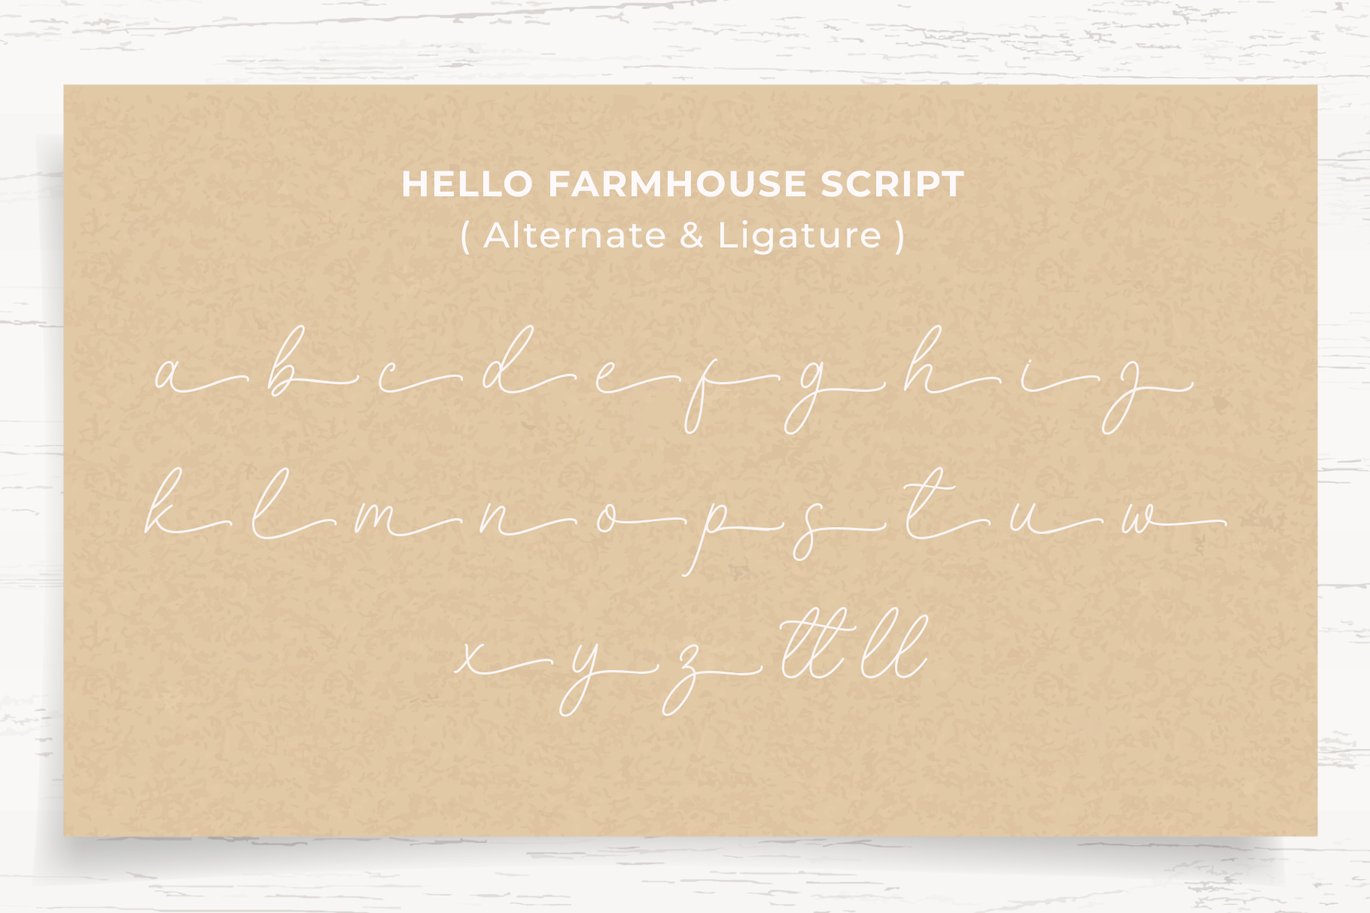 HELLO FARMHOUSE SCRIPT
( Alternate & Ligature )
a b c d e f g h i j
k l m n o p s t u w
x y z tt ll